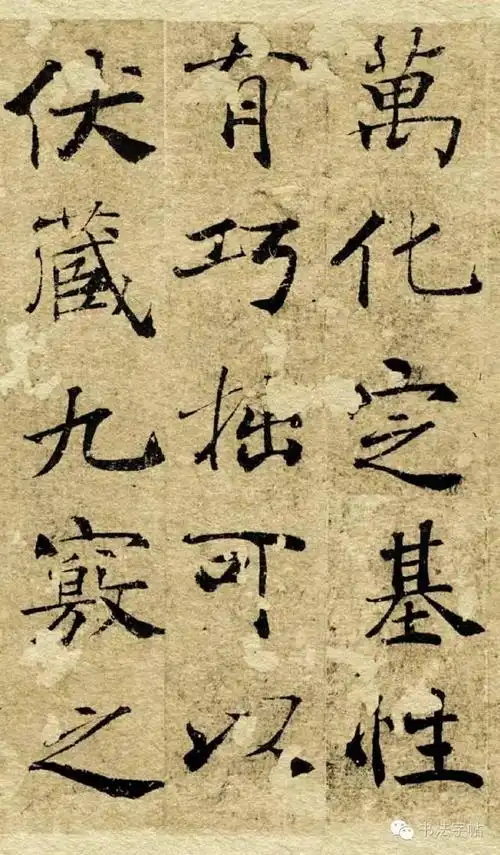 萬化定基性
有巧拙可以
伏藏九竅之
书法字帖